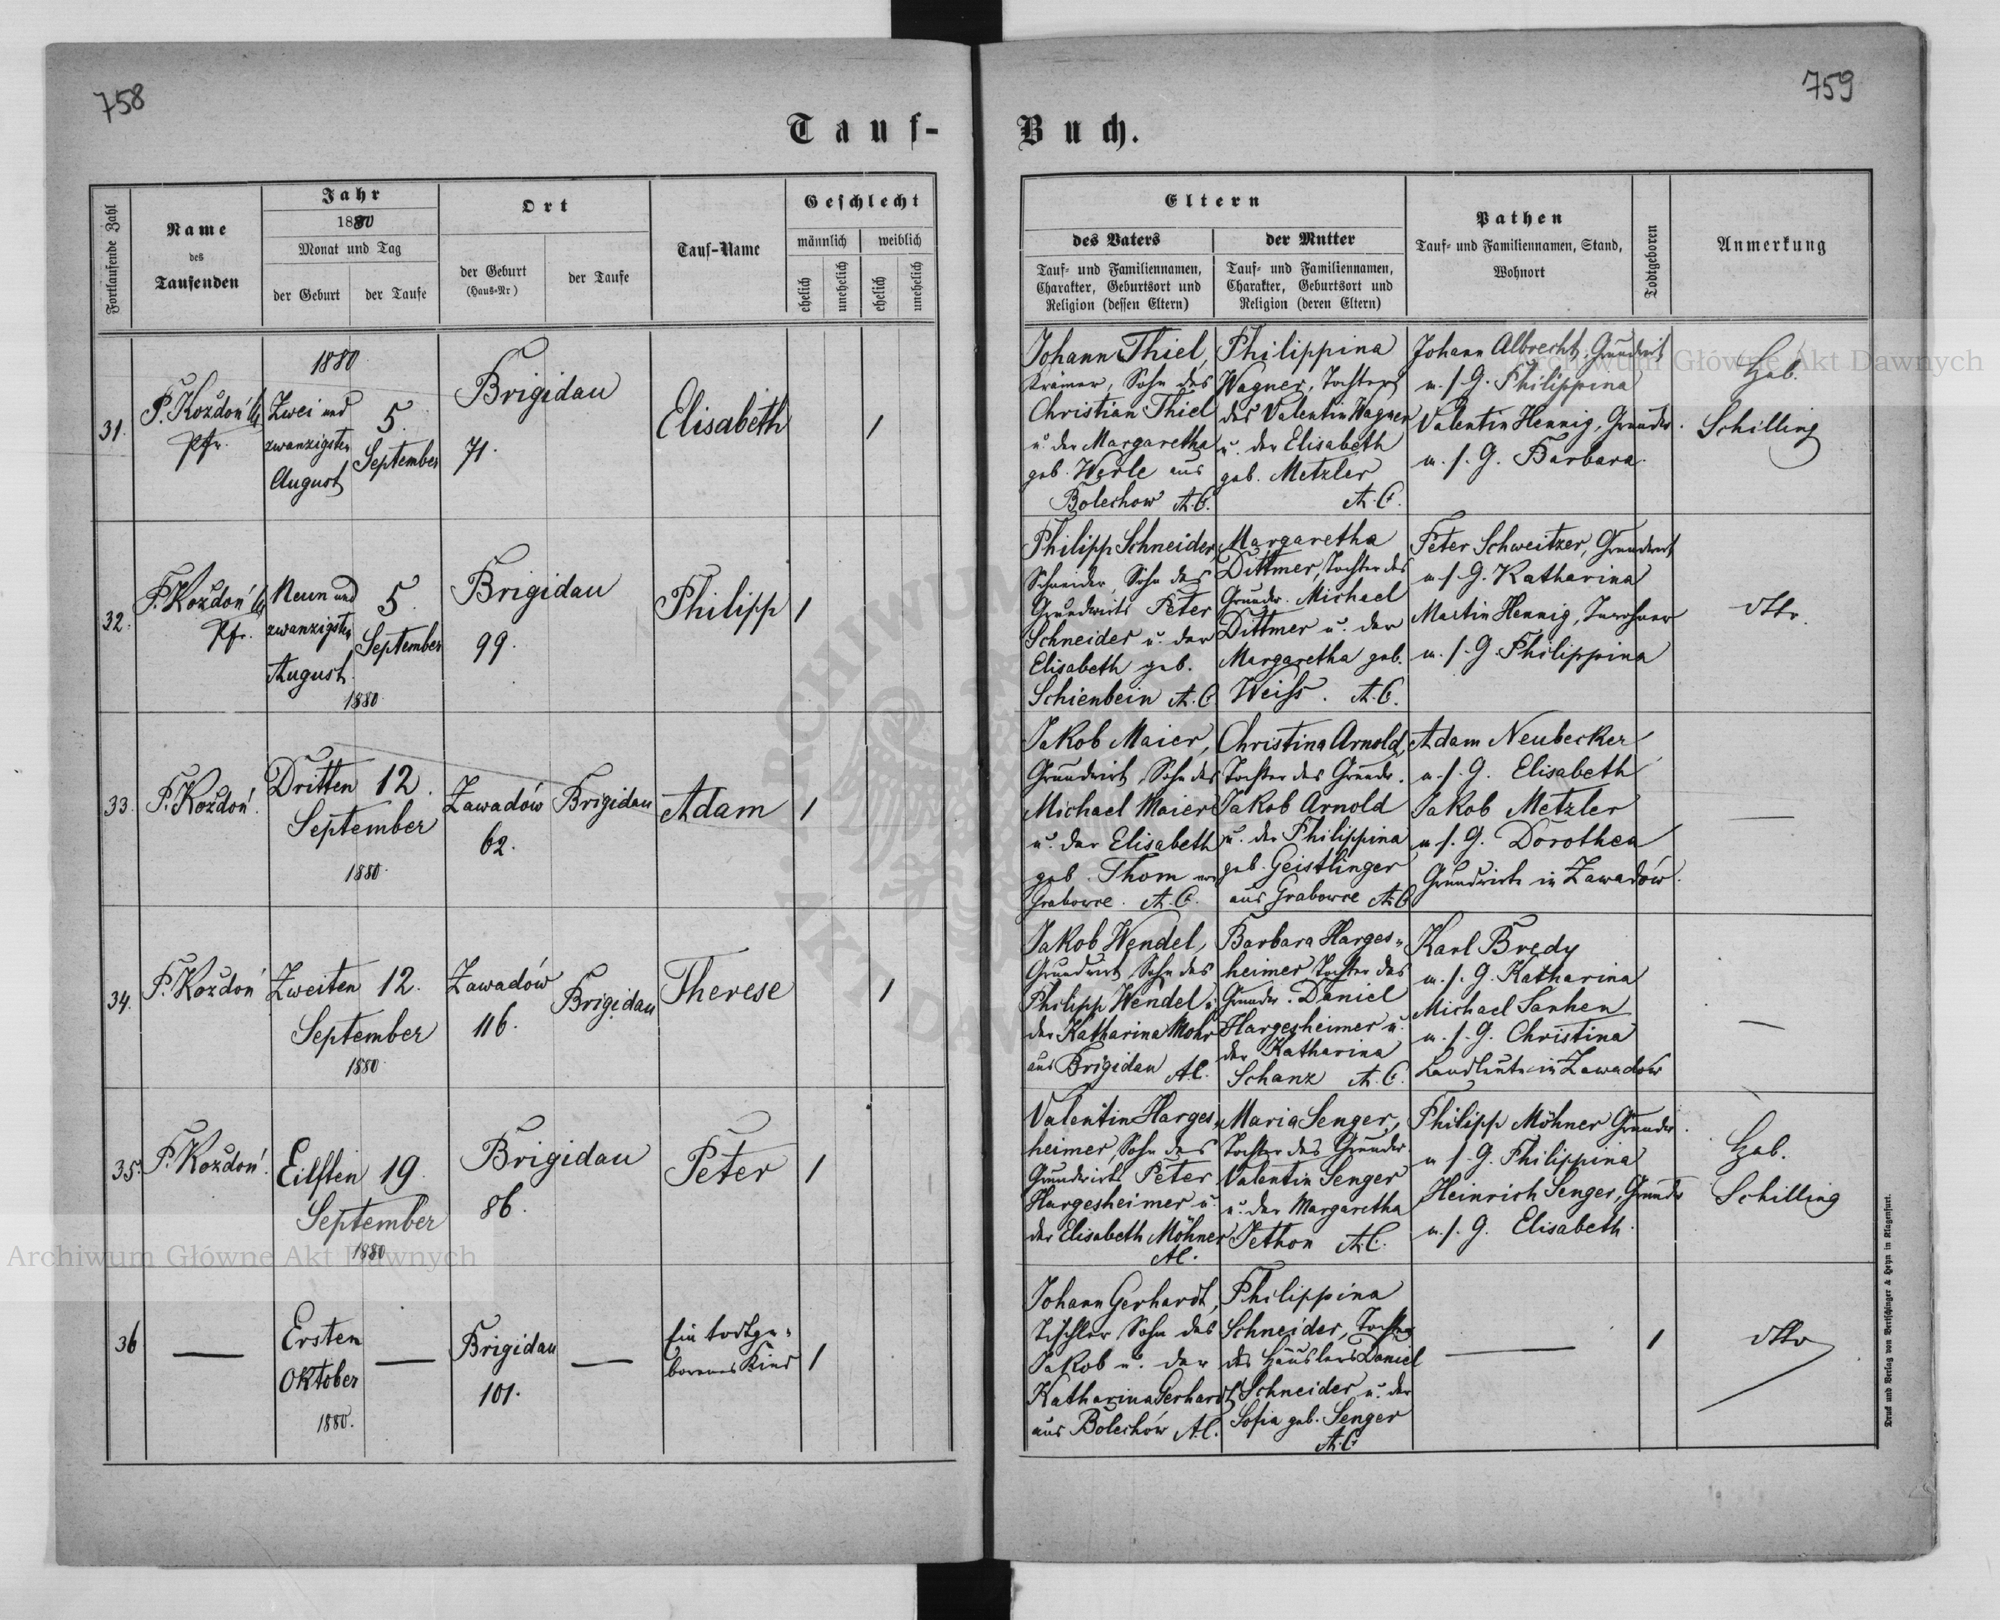 758
759
Tauf-
Buch.
Fortlaufende Zahl
Name
des
Taufenden
Jahr
1880
Monat und Tag
der Geburt
der Taufe
Ort
der Geburt
(Haus-Nr)
der Taufe
Tauf-Name
Geschlecht
männlich
weiblich
ehelich
unehelich
ehelich
unehelich
Eltern
des Vaters
der Mutter
Tauf- und Familiennamen,
Charakter, Geburtsort und
Religion (dessen Eltern)
Tauf- und Familiennamen,
Charakter, Geburtsort und
Religion (deren Eltern)
Pathen
Tauf- und Familiennamen, Stand,
Wohnort
Todtgeboren
Anmerkung
31.
P. Kozdoń
Pfr.
1880
Zwei und
zwanzigsten
August
5.
September
Brigidau
71.
Elisabeth
1
Johann Thiel,
Krämer, Sohn des
Christian Thiel
u. der Margaretha
geb. Werle aus
Bolechow A.C.
Philippina
Wagner, Tochter
des Valentin Wagner
u. der Elisabeth
geb. Metzler
A.C.
Johann Albrecht, Grundwirt
u. s. G. Philippina
Valentin Hennig, Grundw.
u. s. G. Barbara.
Heb.
Schilling
32.
P. Kozdoń
Pfr.
Neun und
zwanzigsten
August
1880
5.
September
Brigidau
99.
Philipp
1
Philipp Schneider,
Schneider, Sohn des
Grundwirts Peter
Schneider u. der
Elisabeth geb.
Schienbein A.C.
Margaretha
Dittmer, Tochter des
Grundw. Michael
Dittmer u. der
Margaretha geb.
Weiss. A.C.
Peter Schweitzer, Grundwirt
u. s. G. Katharina
Martin Hennig, Inwohner
u. s. G. Philippina
dtto.
33.
P. Kozdoń.
Dritten 12.
September
1880.
Zawadów
62.
Brigidau
Adam
1
Jakob Maier,
Grundwirt, Sohn des
Michael Maier
u. der Elisabeth
geb. Thom aus
Grabowce. A.C.
Christina Arnold,
Tochter des Grundw.
Jakob Arnold
u. der Philippina
geb. Geistlinger
aus Grabowce A.C.
Adam Neubecker
u. s. G. Elisabeth
Jakob Metzler
u. s. G. Dorothea
Grundwirte in Zawadów.
34.
P. Kozdoń
Zweiten 12.
September
1880.
Zawadów
116.
Brigidau
Therese
1
Jakob Wendel,
Grundwirt, Sohn des
Philipp Wendel u.
der Katharina Mohr
aus Brigidau A.C.
Barbara Harges-
heimer Tochter des
Grundw. Daniel
Hargesheimer u.
der Katharina
Schanz A.C.
Karl Bredy
u. s. G. Katharina
Michael Sanken
u. s. G. Christina
Landleute in Zawadów
35.
P. Kozdoń.
Eilften 19.
September
1880
Brigidau
86.
Peter
1
Valentin Harges-
heimer, Sohn des
Grundwirts Peter
Hargesheimer u.
der Elisabeth Möhner
A.C.
Maria Senger,
Tochter des Grundw
Valentin Senger
u. der Margaretha
Jethon A.C.
Philipp Möhner Grundw.
u. s. G. Philippina
Heinrich Senger, Grundw
u. s. G. Elisabeth.
Heb.
Schilling
36
Ersten
Oktober
1880.
Brigidau
101.
Ein todtge-
borenes Kind
1
Johann Gerhardt,
Tischler Sohn des
Jakob u. der
Katharina Gerhardt
aus Bolechów A.C.
Philippina
Schneider, Tochter
des Häuslers Daniel
Schneider u. der
Sofia geb. Senger
A.C.
1
dtto
Druck und Verlag von Bertschinger & Heyn in Klagenfurt.
Archiwum Główne Akt Dawnych
Archiwum Główne Akt Dawnych